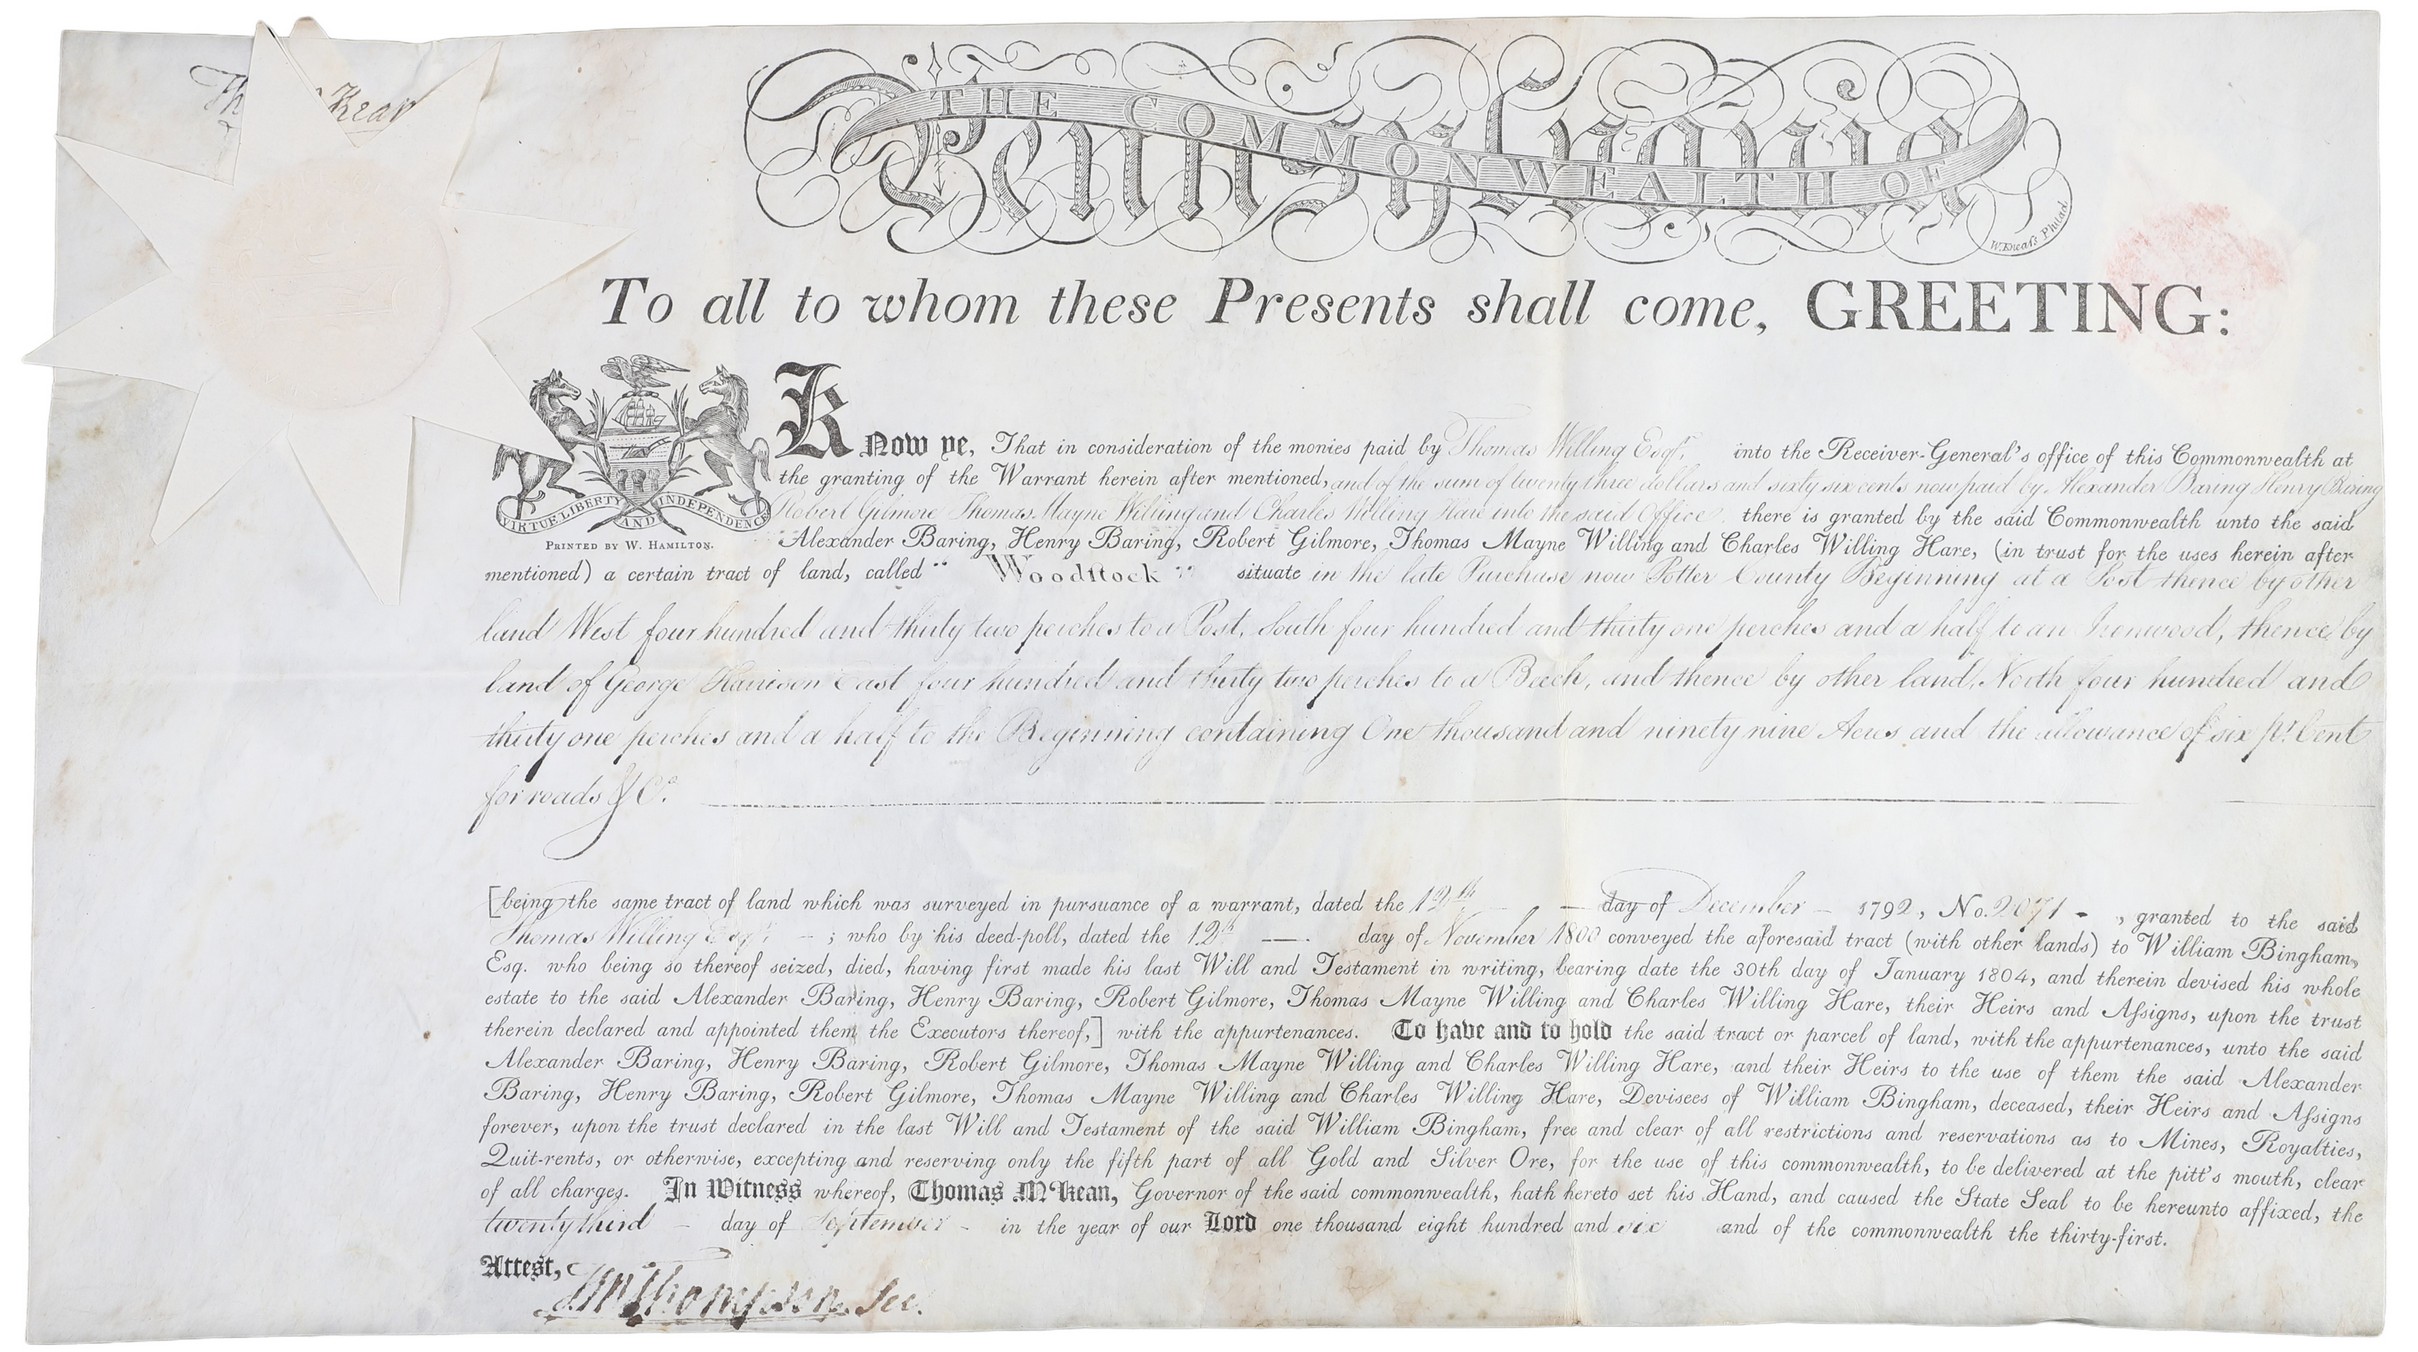 THE COMMONWEALTH OF
Pennsylvania
W. Kneass Philad.
To all to whom these Presents shall come, GREETING:
VIRTUE, LIBERTY AND INDEPENDENCE
PRINTED BY W. HAMILTON.
KNOW ye, That in consideration of the monies paid by Thomas Willing Esqr. into the Receiver-General's office of this Commonwealth at
the granting of the Warrant herein after mentioned, and of the sum of twenty three dollars and sixty six cents now paid by Alexander Baring Henry Baring
Robert Gilmore Thomas Mayne Willing and Charles Willing Hare into the said Office there is granted by the said Commonwealth unto the said
Alexander Baring, Henry Baring, Robert Gilmore, Thomas Mayne Willing and Charles Willing Hare, (in trust for the uses herein after
mentioned) a certain tract of land, called " Woodstock " situate in the late Purchase now Potter County Beginning at a Post thence by other
land West four hundred and thirty two perches to a Post, South four hundred and thirty one perches and a half to an Ironwood, thence by
land of George Harrison East four hundred and thirty two perches to a Beech, and thence by other land, North four hundred and
thirty one perches and a half to the Beginning containing One thousand and ninety nine Acres and the allowance of six pr. Cent
for roads &Ca.
[being the same tract of land which was surveyed in pursuance of a warrant, dated the 12th day of December 1792, No. 2071, granted to the said
Thomas Willing Esqr. ; who by his deed-poll, dated the 12th day of November 1800 conveyed the aforesaid tract (with other lands) to William Bingham,
Esq. who being so thereof seized, died, having first made his last Will and Testament in writing, bearing date the 30th day of January 1804, and therein devised his whole
estate to the said Alexander Baring, Henry Baring, Robert Gilmore, Thomas Mayne Willing and Charles Willing Hare, their Heirs and Assigns, upon the trust
therein declared and appointed them the Executors thereof,] with the appurtenances. To have and to hold the said tract or parcel of land, with the appurtenances, unto the said
Alexander Baring, Henry Baring, Robert Gilmore, Thomas Mayne Willing and Charles Willing Hare, and their Heirs to the use of them the said Alexander
Baring, Henry Baring, Robert Gilmore, Thomas Mayne Willing and Charles Willing Hare, Devisees of William Bingham, deceased, their Heirs and Assigns
forever, upon the trust declared in the last Will and Testament of the said William Bingham, free and clear of all restrictions and reservations as to Mines, Royalties,
Quit-rents, or otherwise, excepting and reserving only the fifth part of all Gold and Silver Ore, for the use of this commonwealth, to be delivered at the pitt's mouth, clear
of all charges. In Witness whereof, Thomas M'Kean, Governor of the said commonwealth, hath hereto set his Hand, and caused the State Seal to be hereunto affixed, the
twenty third day of September in the year of our Lord one thousand eight hundred and six and of the commonwealth the thirty-first.
Attest,
Thompson Sec.